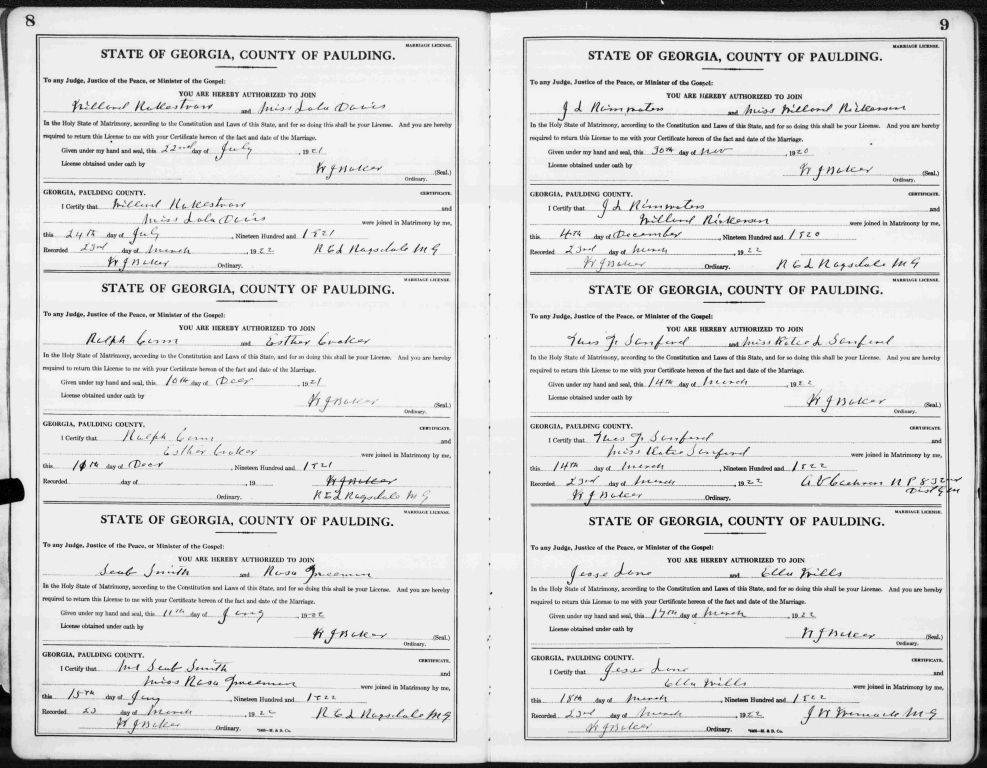 8
MARRIAGE LICENSE.
STATE OF GEORGIA, COUNTY OF PAULDING.
To any Judge, Justice of the Peace, or Minister of the Gospel:
YOU ARE HEREBY AUTHORIZED TO JOIN
Millard Rakestraw and Miss Lula Davis
In the Holy State of Matrimony, according to the Constitution and Laws of this State, and for so doing this shall be your License. And you are hereby
required to return this License to me with your Certificate hereon of the fact and date of the Marriage.
Given under my hand and seal, this 22nd day of July, 1921
License obtained under oath by
W J Baker (Seal.)
Ordinary.
GEORGIA, PAULDING COUNTY. CERTIFICATE.
I Certify that Millard Rakestraw and
Miss Lula Davis were joined in Matrimony by me,
this 24th day of July, Nineteen Hundred and 1921
Recorded 23rd day of March, 1922 R E L Ragsdale M G
W J Baker Ordinary.
MARRIAGE LICENSE.
STATE OF GEORGIA, COUNTY OF PAULDING.
To any Judge, Justice of the Peace, or Minister of the Gospel:
YOU ARE HEREBY AUTHORIZED TO JOIN
Ralph and Esther Croker
In the Holy State of Matrimony, according to the Constitution and Laws of this State, and for so doing this shall be your License. And you are hereby
required to return this License to me with your Certificate hereon of the fact and date of the Marriage.
Given under my hand and seal, this 10th day of Decr, 1921
License obtained under oath by
W J Baker (Seal.)
Ordinary.
GEORGIA, PAULDING COUNTY. CERTIFICATE.
I Certify that Ralph and
Esther Croker were joined in Matrimony by me,
this 10th day of Decr, Nineteen Hundred and 1921
Recorded day of , 19 W J Baker
Ordinary. R E L Ragsdale M G
MARRIAGE LICENSE.
STATE OF GEORGIA, COUNTY OF PAULDING.
To any Judge, Justice of the Peace, or Minister of the Gospel:
YOU ARE HEREBY AUTHORIZED TO JOIN
Seab Smith and Rosa Freeman
In the Holy State of Matrimony, according to the Constitution and Laws of this State, and for so doing this shall be your License. And you are hereby
required to return this License to me with your Certificate hereon of the fact and date of the Marriage.
Given under my hand and seal, this 11th day of Jany, 1922
License obtained under oath by
W J Baker (Seal.)
Ordinary.
GEORGIA, PAULDING COUNTY. CERTIFICATE.
I Certify that Mr Seab Smith and
Miss Rosa Freeman were joined in Matrimony by me,
this 15th day of Jany, Nineteen Hundred and 1922
Recorded 23 day of March, 1922 R E L Ragsdale M G
W J Baker Ordinary. M. & D. Co.
9
MARRIAGE LICENSE.
STATE OF GEORGIA, COUNTY OF PAULDING.
To any Judge, Justice of the Peace, or Minister of the Gospel:
YOU ARE HEREBY AUTHORIZED TO JOIN
J L Rainwaters and Miss Willard Rickerson
In the Holy State of Matrimony, according to the Constitution and Laws of this State, and for so doing this shall be your License. And you are hereby
required to return this License to me with your Certificate hereon of the fact and date of the Marriage.
Given under my hand and seal, this 30th day of Nov, 1920
License obtained under oath by
W J Baker (Seal.)
Ordinary.
GEORGIA, PAULDING COUNTY. CERTIFICATE.
I Certify that J L Rainwaters and
Willard Rickerson were joined in Matrimony by me,
this 4th day of December, Nineteen Hundred and 1920
Recorded 23rd day of March, 1922
W J Baker Ordinary. R E L Ragsdale M G
MARRIAGE LICENSE.
STATE OF GEORGIA, COUNTY OF PAULDING.
To any Judge, Justice of the Peace, or Minister of the Gospel:
YOU ARE HEREBY AUTHORIZED TO JOIN
Sanford and Miss Katie L Sanford
In the Holy State of Matrimony, according to the Constitution and Laws of this State, and for so doing this shall be your License. And you are hereby
required to return this License to me with your Certificate hereon of the fact and date of the Marriage.
Given under my hand and seal, this 14th day of March, 1922
License obtained under oath by
W J Baker (Seal.)
Ordinary.
GEORGIA, PAULDING COUNTY. CERTIFICATE.
I Certify that Sanford and
Miss Katie Sanford were joined in Matrimony by me,
this 14th day of March, Nineteen Hundred and 1922
Recorded 23rd day of March, 1922 Cochran N P 832nd
W J Baker Ordinary. Dist G M
MARRIAGE LICENSE.
STATE OF GEORGIA, COUNTY OF PAULDING.
To any Judge, Justice of the Peace, or Minister of the Gospel:
YOU ARE HEREBY AUTHORIZED TO JOIN
Jesse Lane and Ella Mills
In the Holy State of Matrimony, according to the Constitution and Laws of this State, and for so doing this shall be your License. And you are hereby
required to return this License to me with your Certificate hereon of the fact and date of the Marriage.
Given under my hand and seal, this 17th day of March, 1922
License obtained under oath by
W J Baker (Seal.)
Ordinary.
GEORGIA, PAULDING COUNTY. CERTIFICATE.
I Certify that Jesse Lane and
Ella Mills were joined in Matrimony by me,
this 18th day of March, Nineteen Hundred and 1922
Recorded 23rd day of March, 1922 J W Womack M G
W J Baker Ordinary. M. & D. Co.